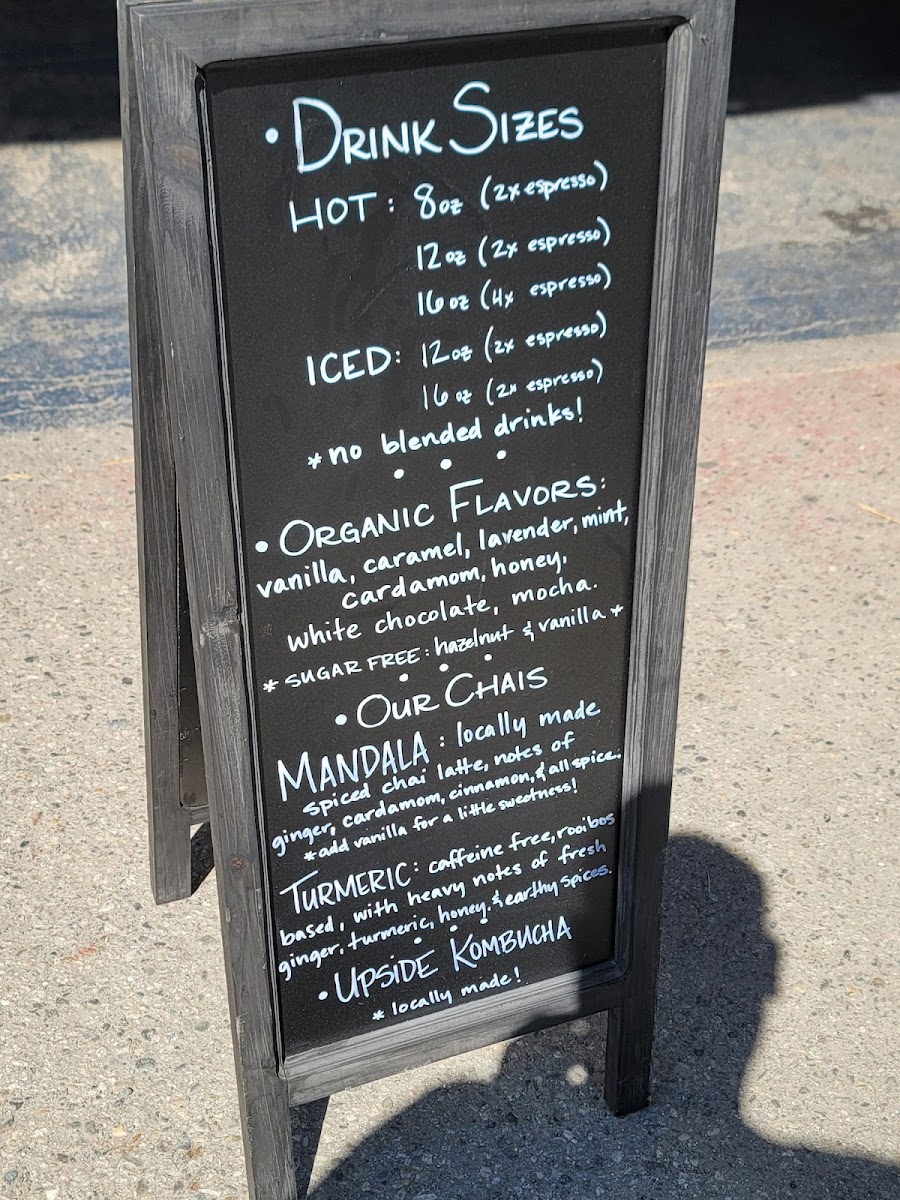 • DRINK SIZES
HOT: 8oz (2x espresso)
12oz (2x espresso)
16oz (4x espresso)
ICED: 12oz (2x espresso)
16oz (2x espresso)
*no blended drinks!
• ORGANIC FLAVORS:
vanilla, caramel, lavender, mint,
cardamom, honey,
white chocolate, mocha.
* SUGAR FREE: hazelnut & vanilla *
• OUR CHAIS
MANDALA: locally made
spiced chai latte, notes of
ginger, cardamom, cinnamon, & all spice.
*add vanilla for a little sweetness!
TURMERIC: caffeine free, rooibos
based, with heavy notes of fresh
ginger, turmeric, honey, & earthy spices.
• UPSIDE KOMBUCHA
* locally made!